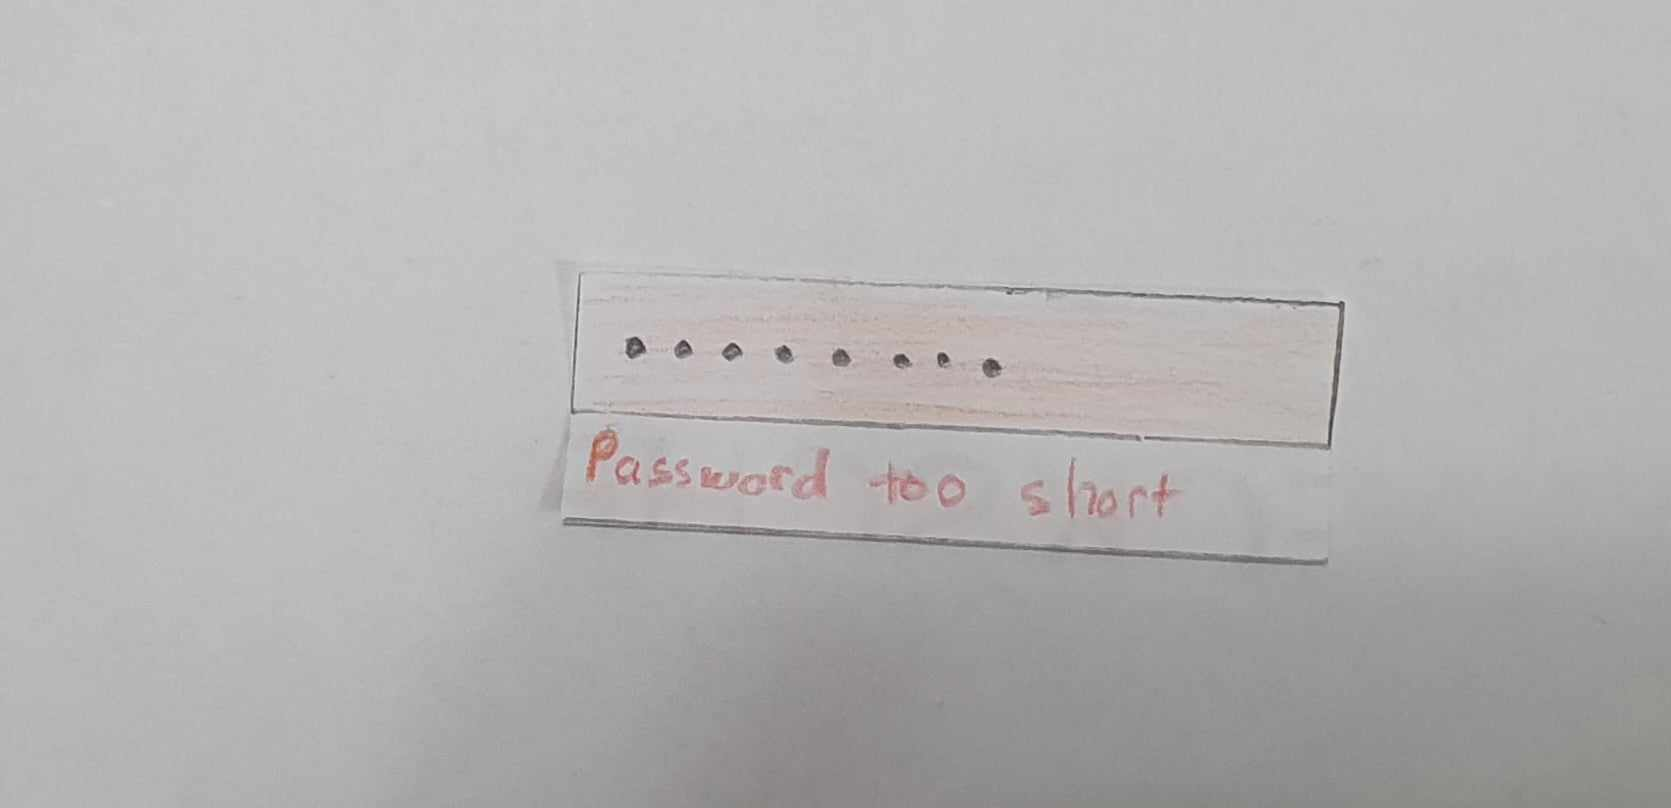 ••••••••
Password too short